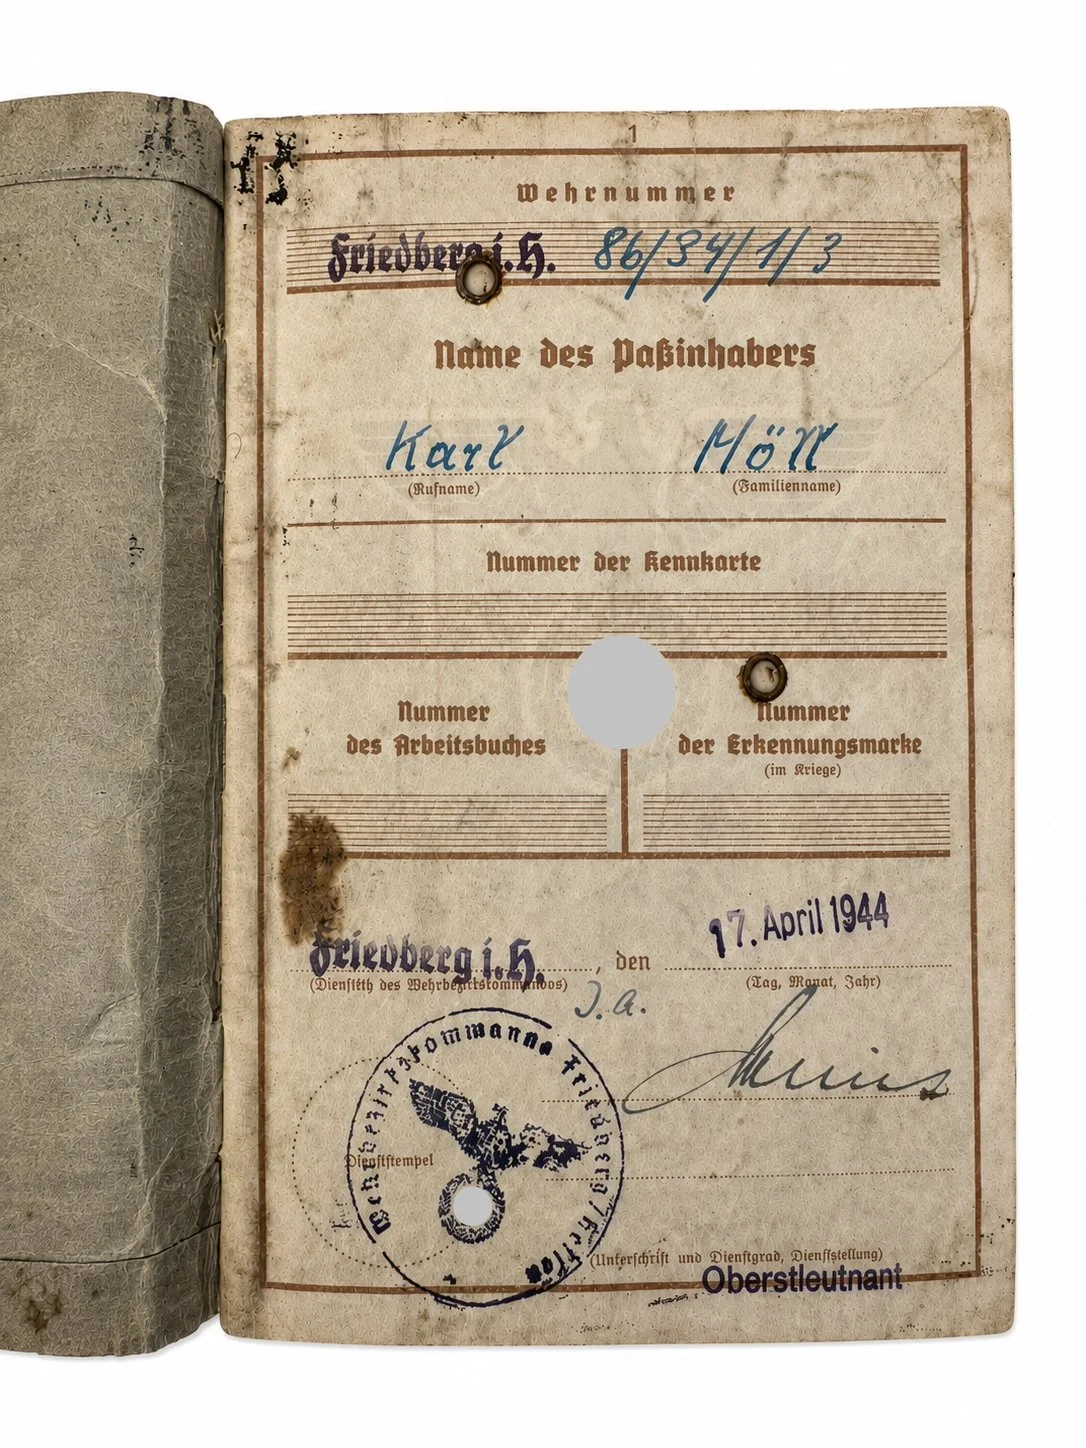 1
Wehrnummer
Friedberg i. H. 86/34/1/3
Name des Paßinhabers
Karl Möll
(Rufname) (Familienname)
Nummer der Kennkarte
Nummer des Arbeitsbuches
Nummer der Erkennungsmarke
(im Kriege)
17. April 1944
Friedberg i. H. , den
(Dienstsitz des Wehrbezirkskommandos) (Tag, Monat, Jahr)
J. A.
Wehrbezirkskommando Friedberg/Hessen
Dienststempel
(Unterschrift und Dienstgrad, Dienststellung)
Oberstleutnant